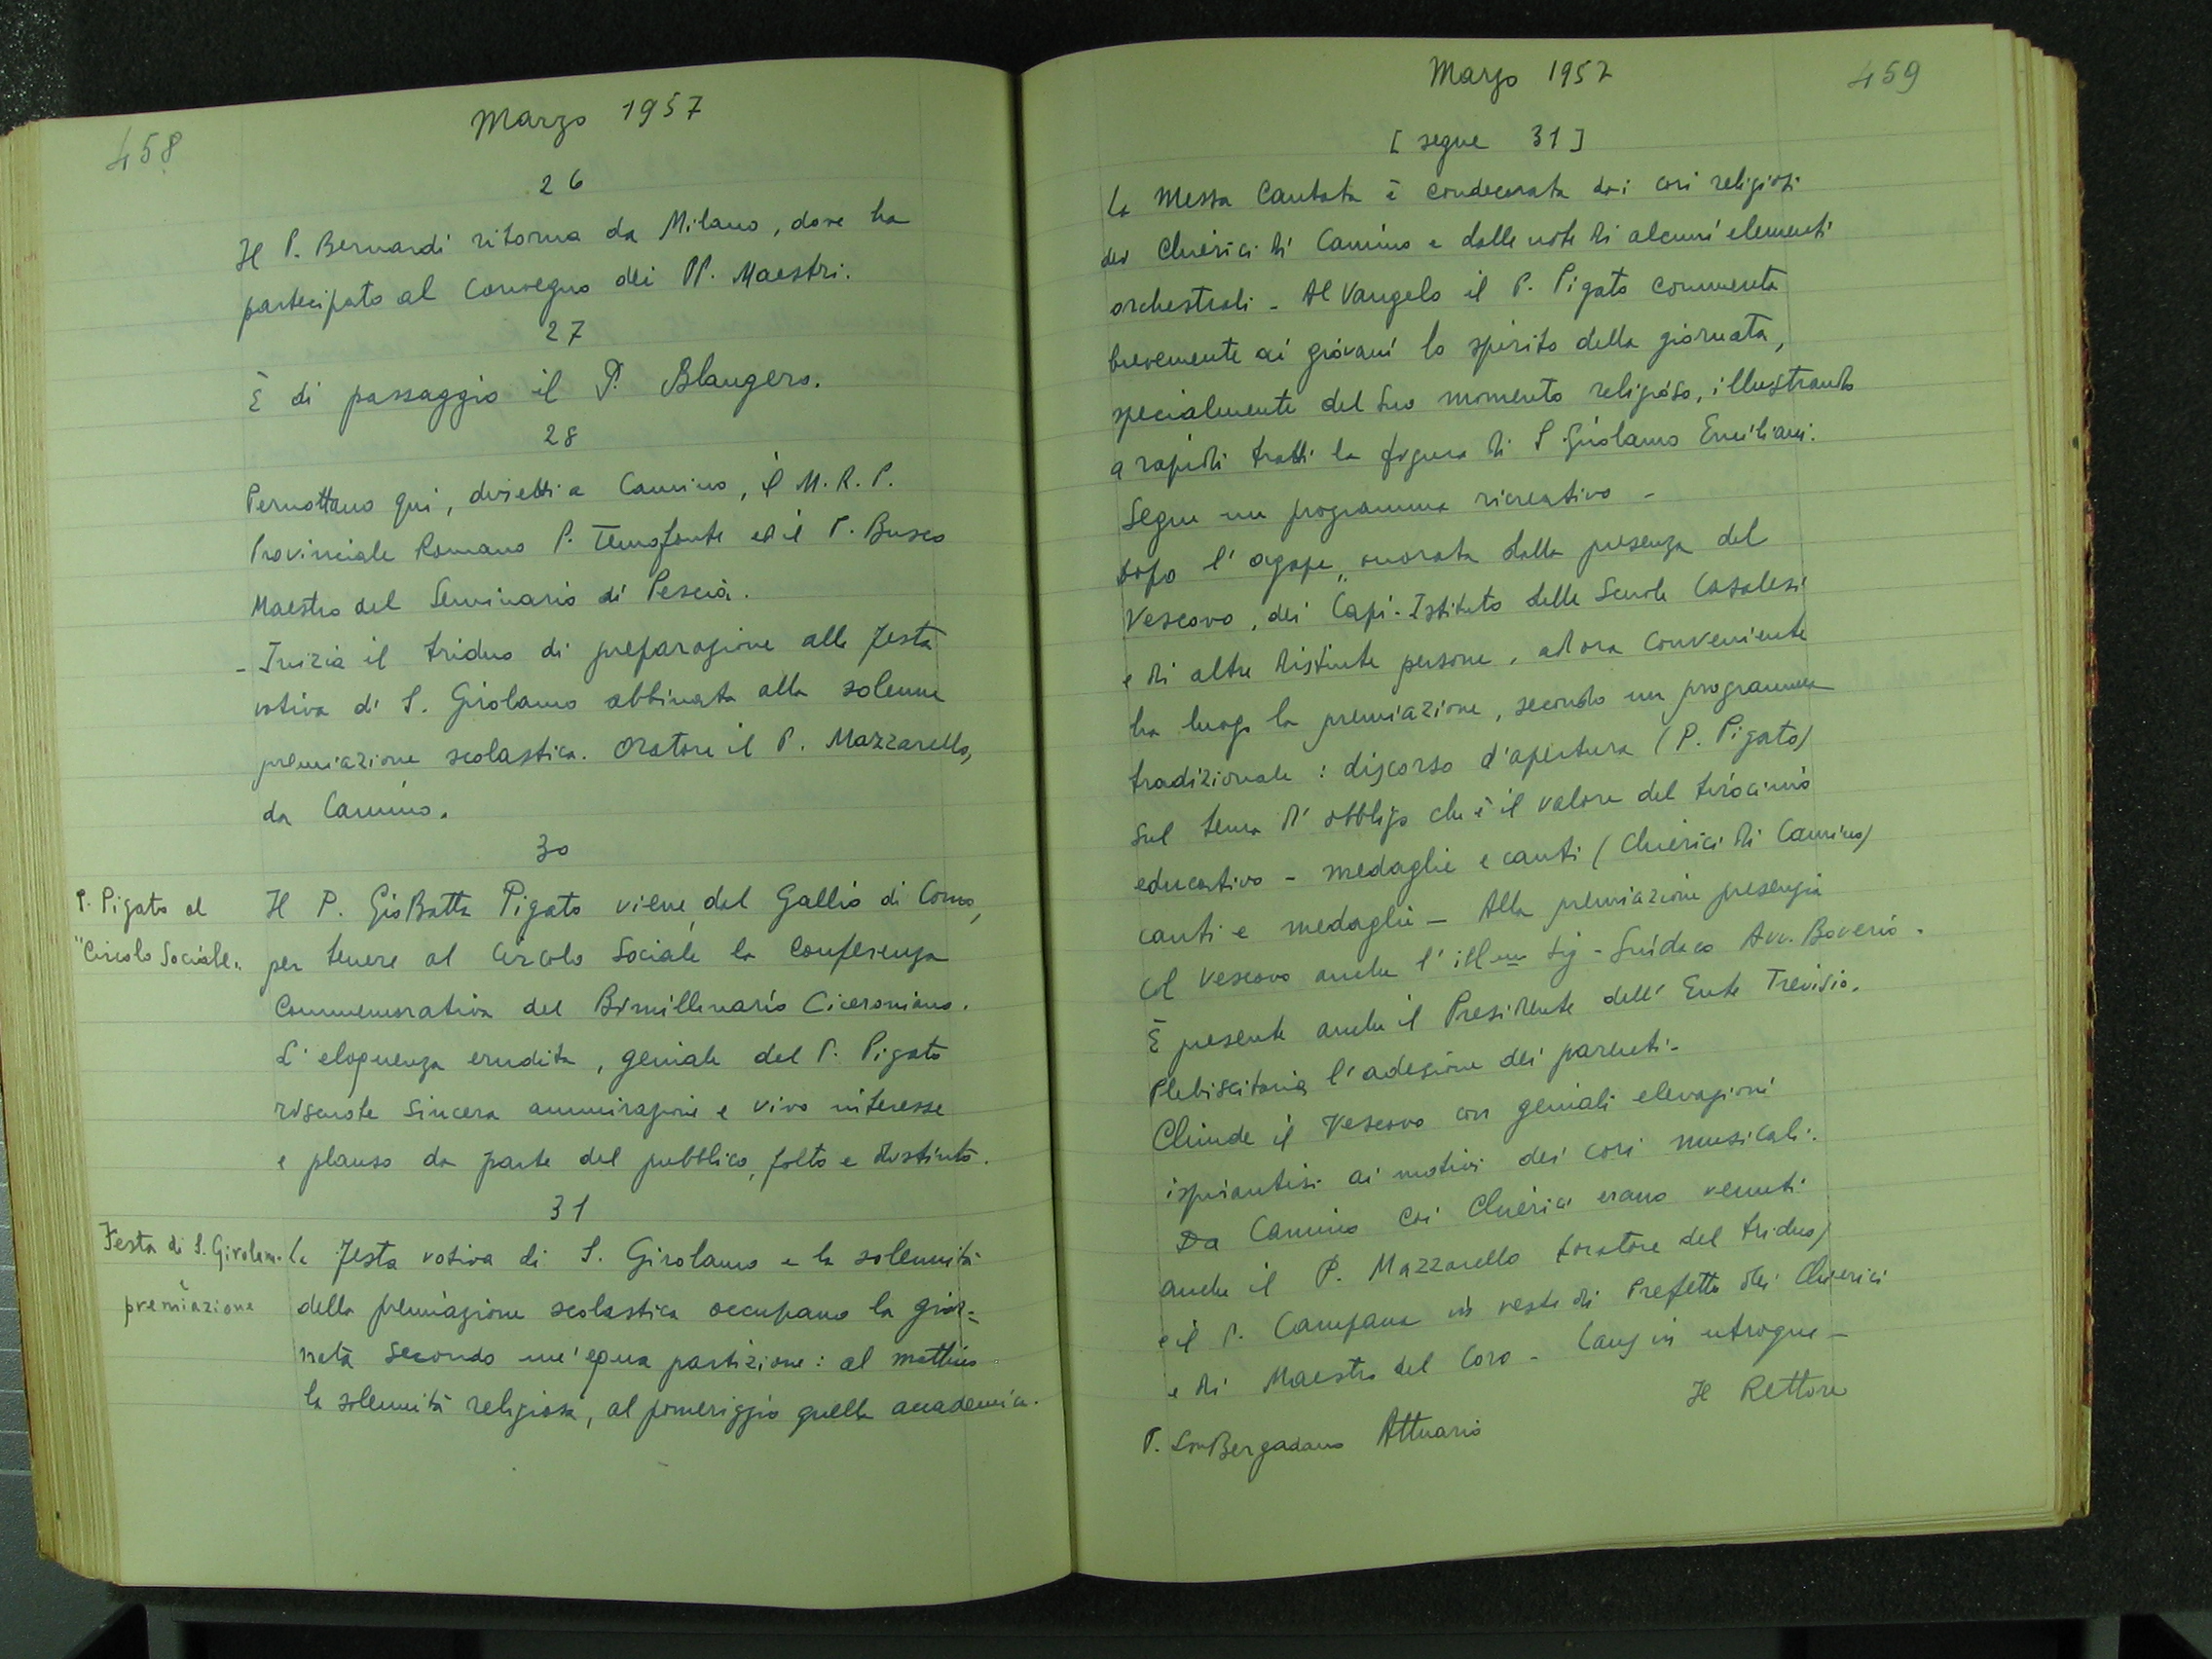 458
Marzo 1957
26
Il P. Bernardi ritorna da Milano, dove ha
partecipato al Convegno dei PP. Maestri.
27
È di passaggio il P. Blangero.
28
Pernottano qui, diretti a Camino, il M. R. P.
Provinciale Romano P. Tenofonte ed il P. Busco
Maestro del Seminario di Pescia.
- Inizia il triduo di preparazione alla festa
votiva di S. Girolamo abbinata alla solenne
premiazione scolastica. Oratore il P. Mazzarello,
da Camino.
30
P. Pigato al
"Circolo Sociale„
Il P. GioBatta Pigato viene dal Gallio di Como,
per tenere al Circolo Sociale la Conferenza
Commemorativa del Bimillenario Ciceroniano.
L'eloquenza erudita, geniale del P. Pigato
riscuote sincera ammirazione e vivo interesse
e plauso da parte del pubblico, folto e distinto.
31
Festa di S. Girolam.
e
premiazione
La festa votiva di S. Girolamo e la solennità
della premiazione scolastica occupano la gior=
nata secondo un'equa partizione: al mattino
la solennità religiosa, al pomeriggio quella accademica.
Marzo 1957
459
[ segue 31 ]
La Messa Cantata è condecorata dai cori religiosi
dei Chierici di Camino e dalle note di alcuni elementi
orchestrali - Al Vangelo il P. Pigato commenta
brevemente ai giovani lo spirito della giornata,
specialmente del suo momento religioso, illustrando
a rapidi tratti la figura di S. Girolamo Emiliani.
Segue un programma ricreativo -
Dopo l'agape„ onorata dalla presenza del
Vescovo, dei Capi-Istituto delle Scuole Casalesi
e di altre distinte persone, ad ora conveniente
ha luogo la premiazione, secondo un programma
tradizionale: discorso d'apertura (P. Pigato)
sul tema d'obbligo che è il valore del tirocinio
educativo - medaglie e canti (Chierici di Camino)
canti e medaglie - Alla premiazione presenzia
col Vescovo anche l'ill.mo Sig - Sindaco Avv. Boverio.
È presente anche il Presidente dell'Ente Trevisio.
Plebiscitaria l'adesione dei parenti -
Chiude il Vescovo con geniali elevazioni
ispirantisi ai motivi dei cori musicali.
Da Camino coi Chierici erano venuti
anche il P. Mazzarello (oratore del triduo)
e il P. Campana in veste di Prefetto dei Chierici
e di Maestro del Coro - Laus in utroque -
Il Rettore
P. Bergadano Attuario